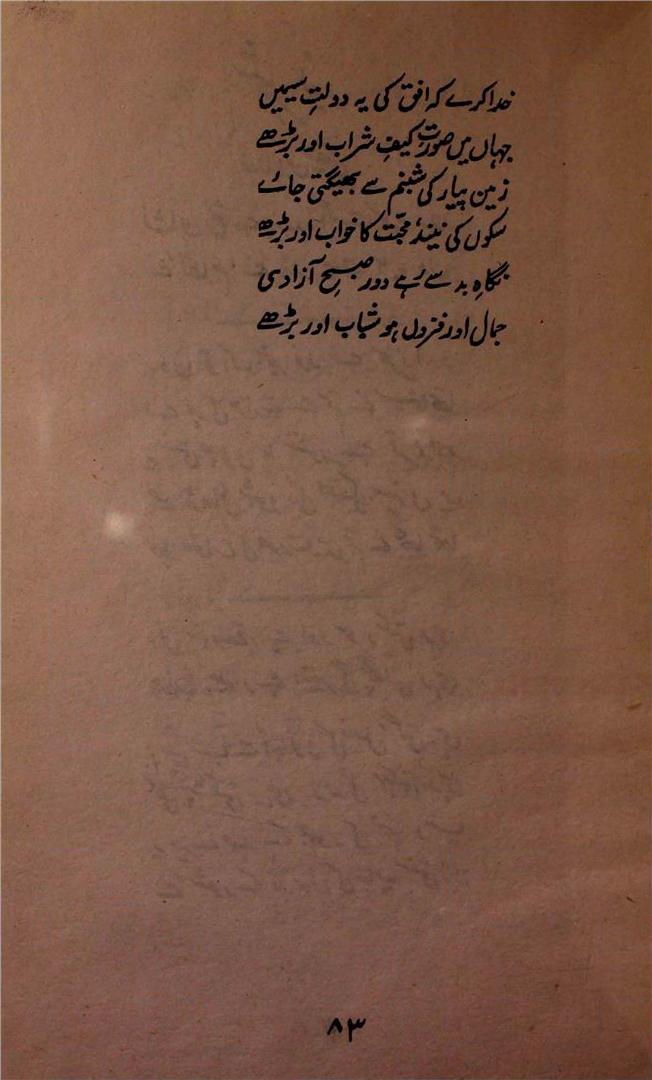 خدا کرے کہ افق کی یہ دولتِ سیمیں
جہاں میں صورتِ کیفِ شراب اور بڑھے
زمین پیار کی شبنم سے بھیگتی جائے
سکوں کی نیند محبّت کا خواب اور بڑھے
نگاہِ بد سے رہے دور صبحِ آزادی
جمال اور فزوں ہو شباب اور بڑھے
۸۳